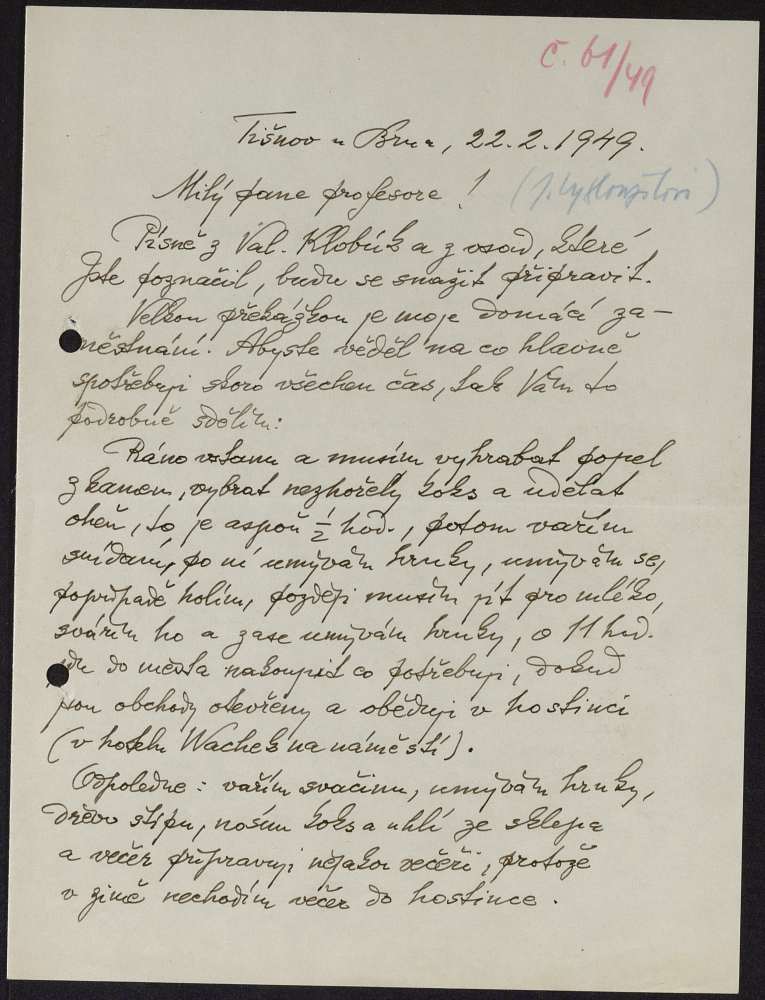 č. 61/49
Tišnov u Brna, 22.2.1949.
Milý pane profesore! (J. Vysloužilovi)
Písně z Val. Klobúk a z osad, které
jste poznačil, budu se snažit připravit.
Velkou překážkou je moje domácí za-
městnání. Abyste věděl na co hlavně
spotřebuji skoro všechen čas, tak Vám to
podrobně sdělím:
Ráno vstanu a musím vyhrabat popel
z kamen, vybrat nezhořelý koks a udělat
oheň, to je aspoň ½ hod., potom vařím
snídani, po ní umývám hrnky, umývám se,
popřípadě holím, později musím jít pro mléko,
svářím ho a zase umývám hrnky, o 11 hod.
jdu do města nakoupit co potřebuji, dokud
jsou obchody otevřeny a obědvám v hostinci
(v hotelu Wachek na náměstí).
Odpoledne: vařím svačinu, umývám hrnky,
dřevo štípu, nosím koks a uhlí ze sklepa
a večer připravuji nějakou večeři, protože
v zimě nechodím večer do hostince.